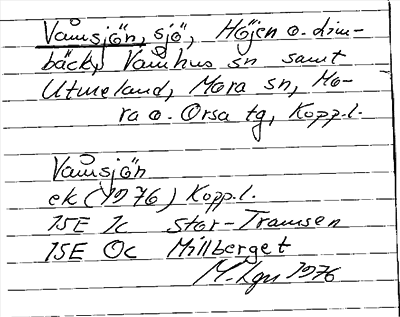 Våmsjön, sjö, Höjen o. Lim-
bäck, Våmhus sn samt
Utmeland, Mora sn, Mo-
ra o. Orsa tg, Kopp.l.
Våmsjön
ek (1976) Kopp.l.
15E 1c Stor-Tramsen
15E 0c Millberget
1976